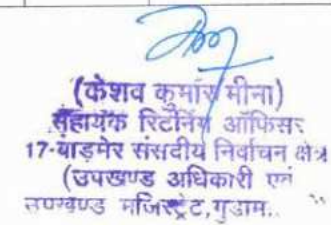 (केशव कुमार मीना)
सहायक रिटर्निंग ऑफिसर
17-बाड़मेर संसदीय निर्वाचन क्षेत्र
(उपखण्ड अधिकारी एवं
उपखण्ड मजिस्ट्रेट,गुडाम..